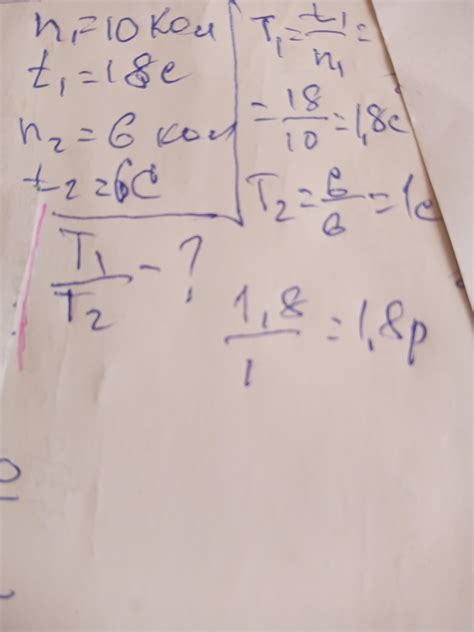 n₁=10 кол
t₁=18c
n₂=6 кол
t₂=6c
T₁/T₂ - ?
T₁=t₁/n₁=
=18/10=1,8c
T₂=6/6=1c
1,8/1=1,8р